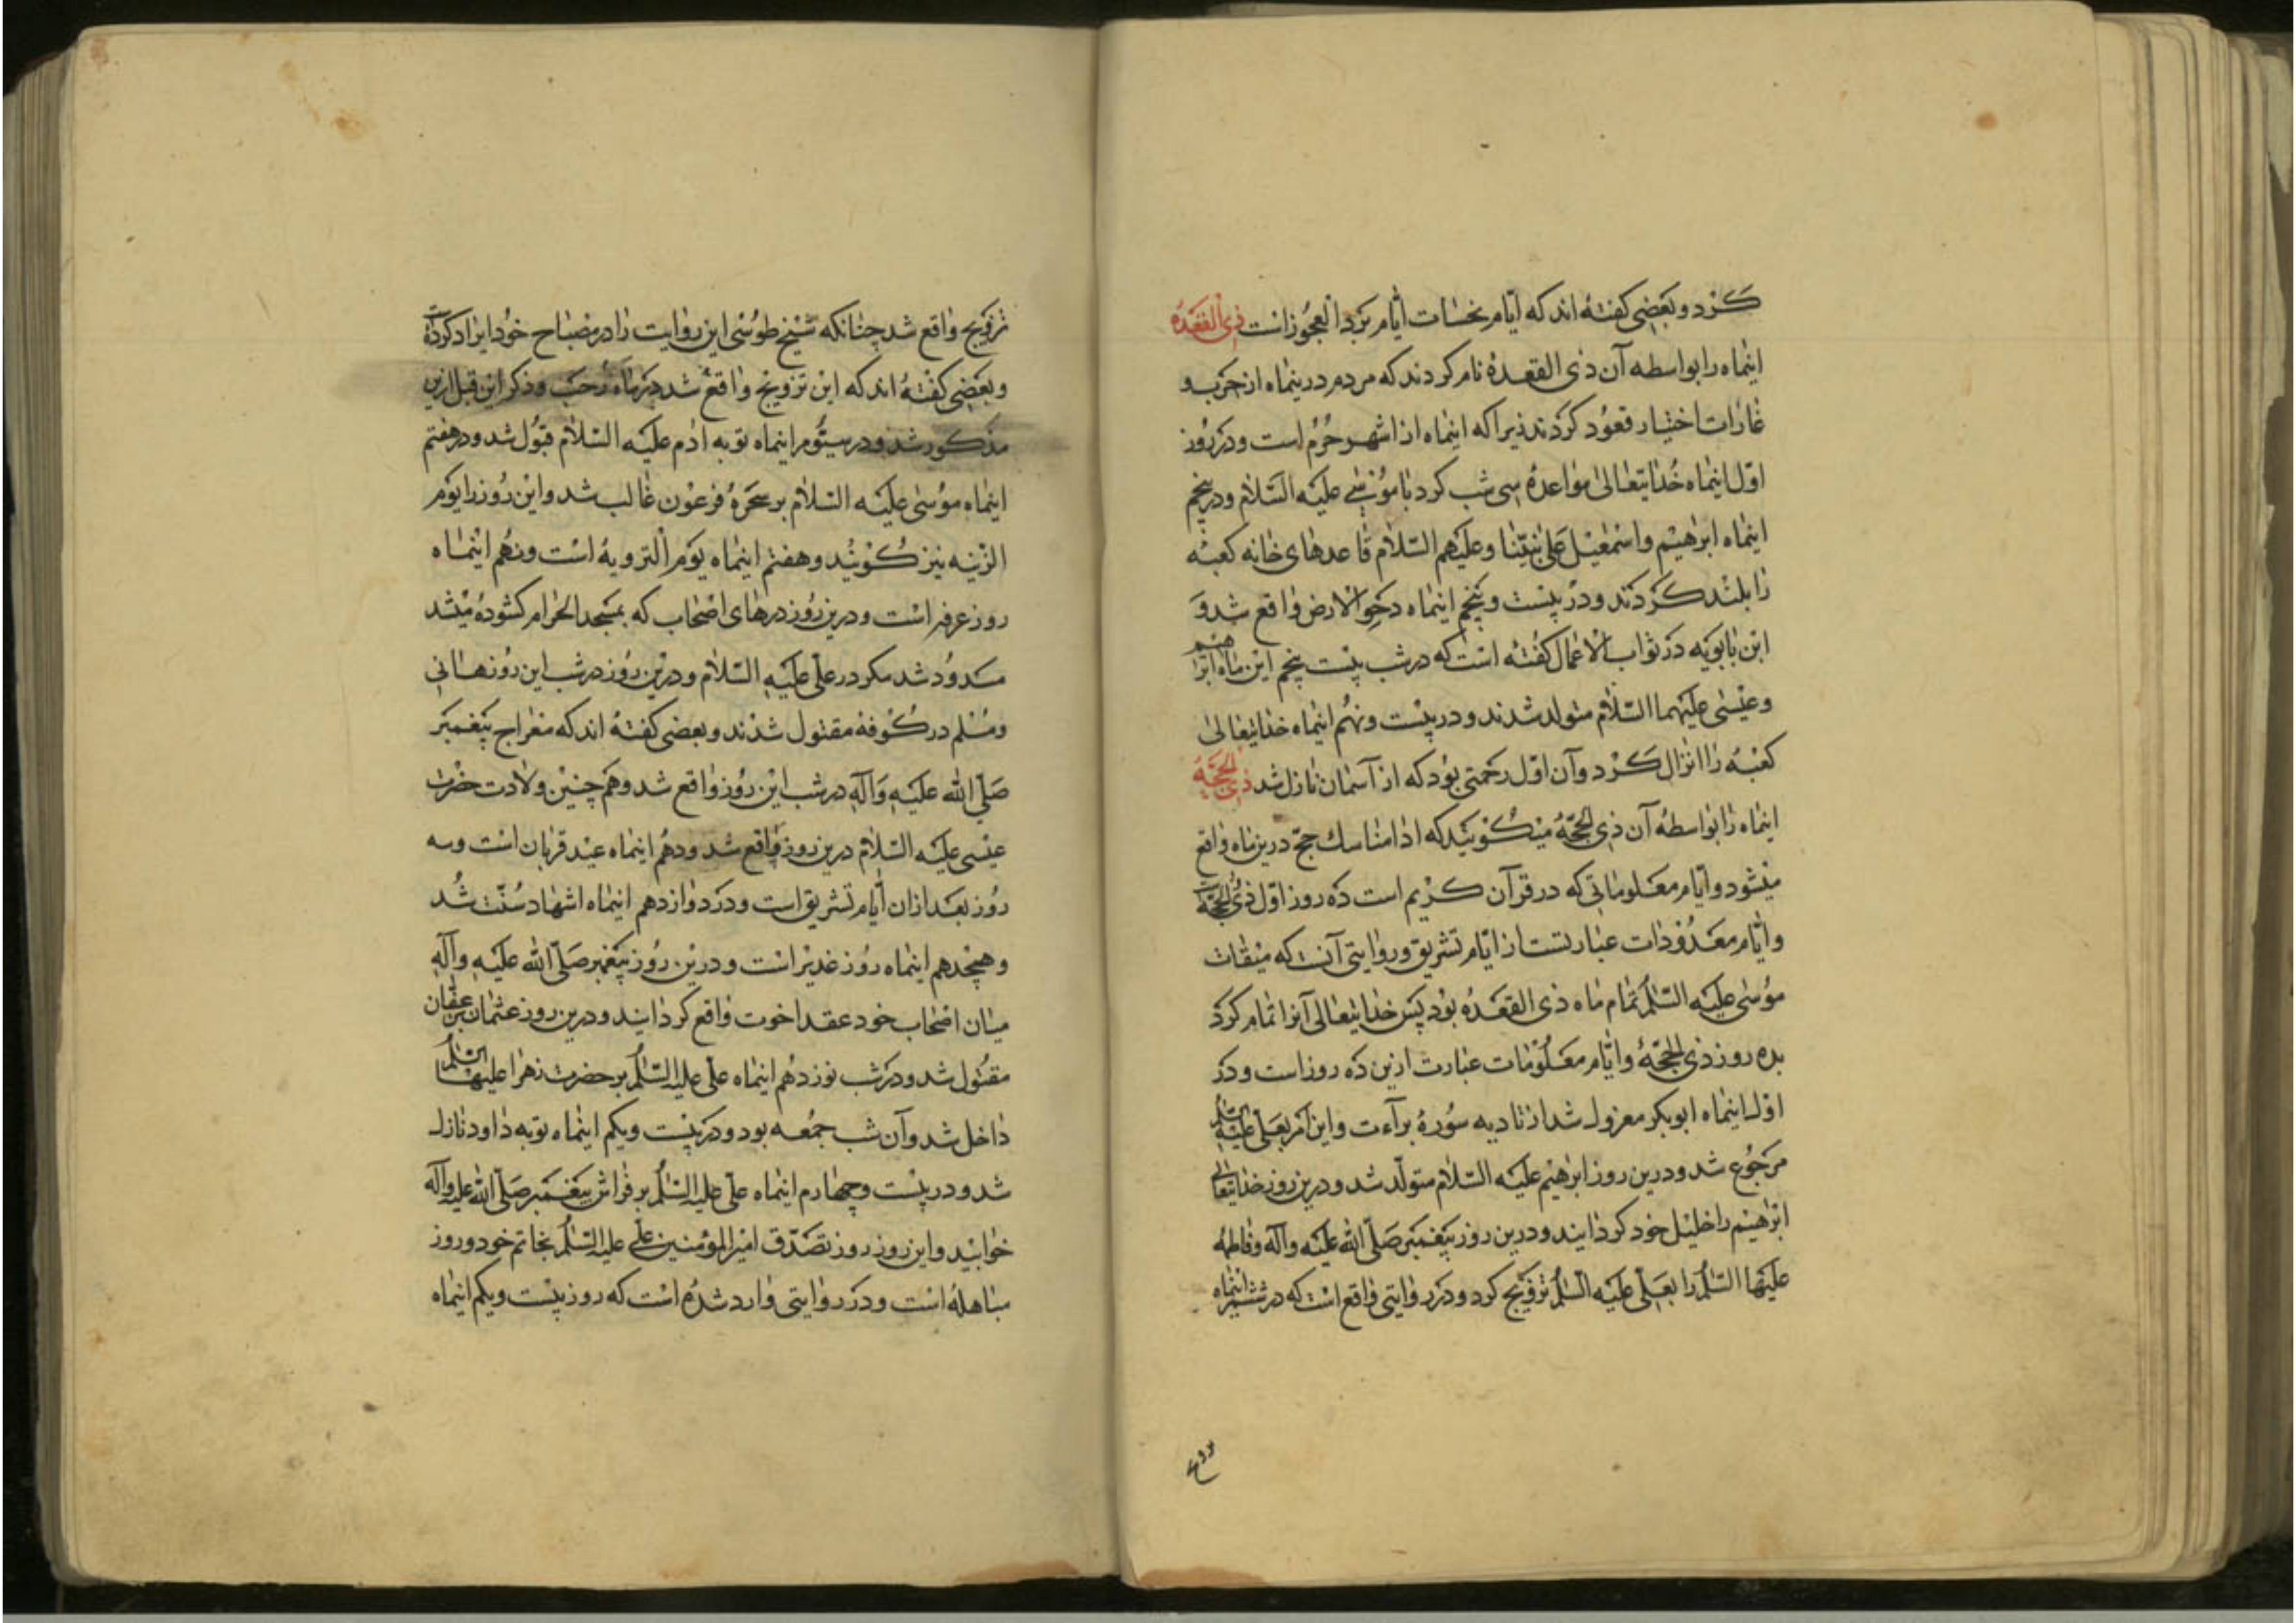 کرد و بعضی کفته اند که ایام نحسات ایام برد العجوز است ذی القعده
اینماه را بواسطه آن ذی القعده نام کردند که مردم درینماه از حرب و
غارات اختیار قعود کردند زیرا که اینماه از اشهر حرم است و در روز
اول اینماه خدایتعالی مواعده سی شب کرد با موسی علیه السلام و در پنجم
اینماه ابرهیم و اسمعیل علی نبینا و علیهم السلام قاعدهای خانه کعبه
را بلند کردند و در بیست و پنجم اینماه دحو الارض واقع شد و
ابن بابویه در ثواب الاعمال کفته است که در شب بیست پنجم این ماه ابرهیم
و عیسی علیهما السلام متولد شدند و در بیست و نهم اینماه خدایتعالی
کعبه را انزال کرد و آن اول رحمتی بود که از آسمان نازل شد ذی الحجه
اینماه را بواسطه آن ذی الحجه میکویند که ادا مناسك حج درین ماه واقع
میشود و ایام معلوماتی که در قرآن کریم است ده روز اول ذی الحجه است
و ایام معدودات عبارتست از ایام تشریق و روایتی آنست که میقات
موسی علیه السلم تمام ماه ذی القعده بود پس خدایتعالی آنرا تمام کرد
بده روز ذی الحجه و ایام معلومات عبارت ازین ده روز است و در
اول اینماه ابوبکر معزول شد از تادیه سوره برآءت و این امر بعلی علیه السلم
مرجوع شد و درین روز ابرهیم علیه السلام متولد شد و درین روز خدایتعالی
ابرهیم را خلیل خود کردانید و درین روز پیغمبر صلی الله علیه وآله و فاطمه
علیها السلم را بعلی علیه السلم تزویج کرد و در روایتی واقع است که در ششم اینماه
تزویج واقع شد چنانکه شیخ طوسی این روایت را در مصباح خود ایراد کرده است
و بعضی کفته اند که این تزویج واقع شد در ماه رجب و ذکر این قبل ازین
مذکور شد و در سیوم اینماه توبه ادم علیه السلام قبول شد و در هفتم
اینماه موسی علیه السلام بر سحره فرعون غالب شد و این روز را یوم
الزینه نیز کویند و هفتم اینماه یوم الترویه است و نهم اینماه
روز عرفه است و درین روز درهای اصحاب که بمسجد الحرام کشوده میشد
مسدود شد مکر در علی علیه السلام و درین روز در شب این روز هانی
و مسلم در کوفه مقتول شدند و بعضی کفته اند که معراج پیغمبر
صلی الله علیه وآله در شب این روز واقع شد و همچنین ولادت حضرت
عیسی علیه السلام درین روز واقع شد و دهم اینماه عید قربان است و سه
روز بعد ازان ایام تشریق است و در دوازدهم اینماه اشهاد سنت شد
و هیجدهم اینماه روز غدیر است و درین روز پیغمبر صلی الله علیه وآله
میان اصحاب خود عقد اخوت واقع کردانید و درین روز عثمان بن عفان
مقتول شد و در شب نوزدهم اینماه علی علیه السلم بر حضرت زهرا علیها السلم
داخل شد و آن شب جمعه بود و در بیست و یکم اینماه توبه داود نازل
شد و در بیست و چهارم اینماه علی علیه السلم بر فراش پیغمبر صلی الله علیه وآله
خوابید و این روز روز تصدق امیر المؤمنین علی علیه السلم بخاتم خود و روز
مباهله است و در روایتی وارد شده است که روز بیست و یکم اینماه